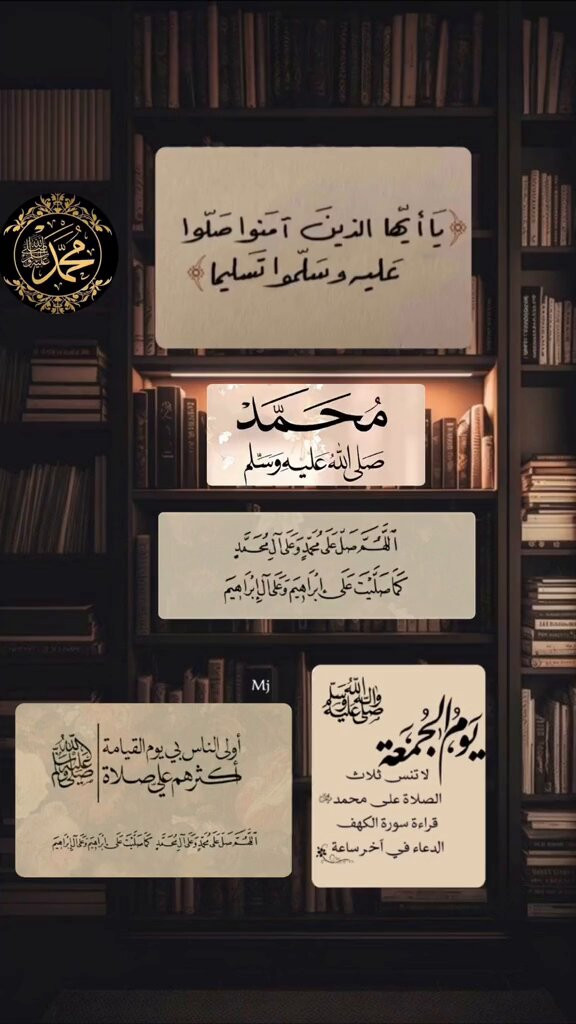 يَا أيّها الذينَ آمَنوا صَلّوا
عَليه وسَلّموا تَسليما
محمد
صلى الله عليه وسلم
مُحَمَّدْ
صَلى اللهُ عَليهِ وَسَلّم
اللَّهُمَّ صَلِّ عَلَى مُحَمَّدٍ وَعَلَى آلِ مُحَمَّدٍ
كَمَا صَلَّيْتَ عَلَى إِبْرَاهِيمَ وَعَلَى آلِ إِبْرَاهِيمَ
Mj
صلى الله عليه وآله وسلم
يَومُ الجُمعَة
لا تنس ثلاث
الصلاة على محمد ﷺ
قراءة سورة الكهف
الدعاء في آخر ساعة
أولى الناس بي يوم القيامة
أكثرهم علي صلاة
صلى الله عليه وسلم
اللَّهُمَّ صَلِّ عَلَى مُحَمَّدٍ وَعَلَى آلِ مُحَمَّدٍ كَمَا صَلَّيْتَ عَلَى إِبْرَاهِيمَ وَعَلَى آلِ إِبْرَاهِيمَ